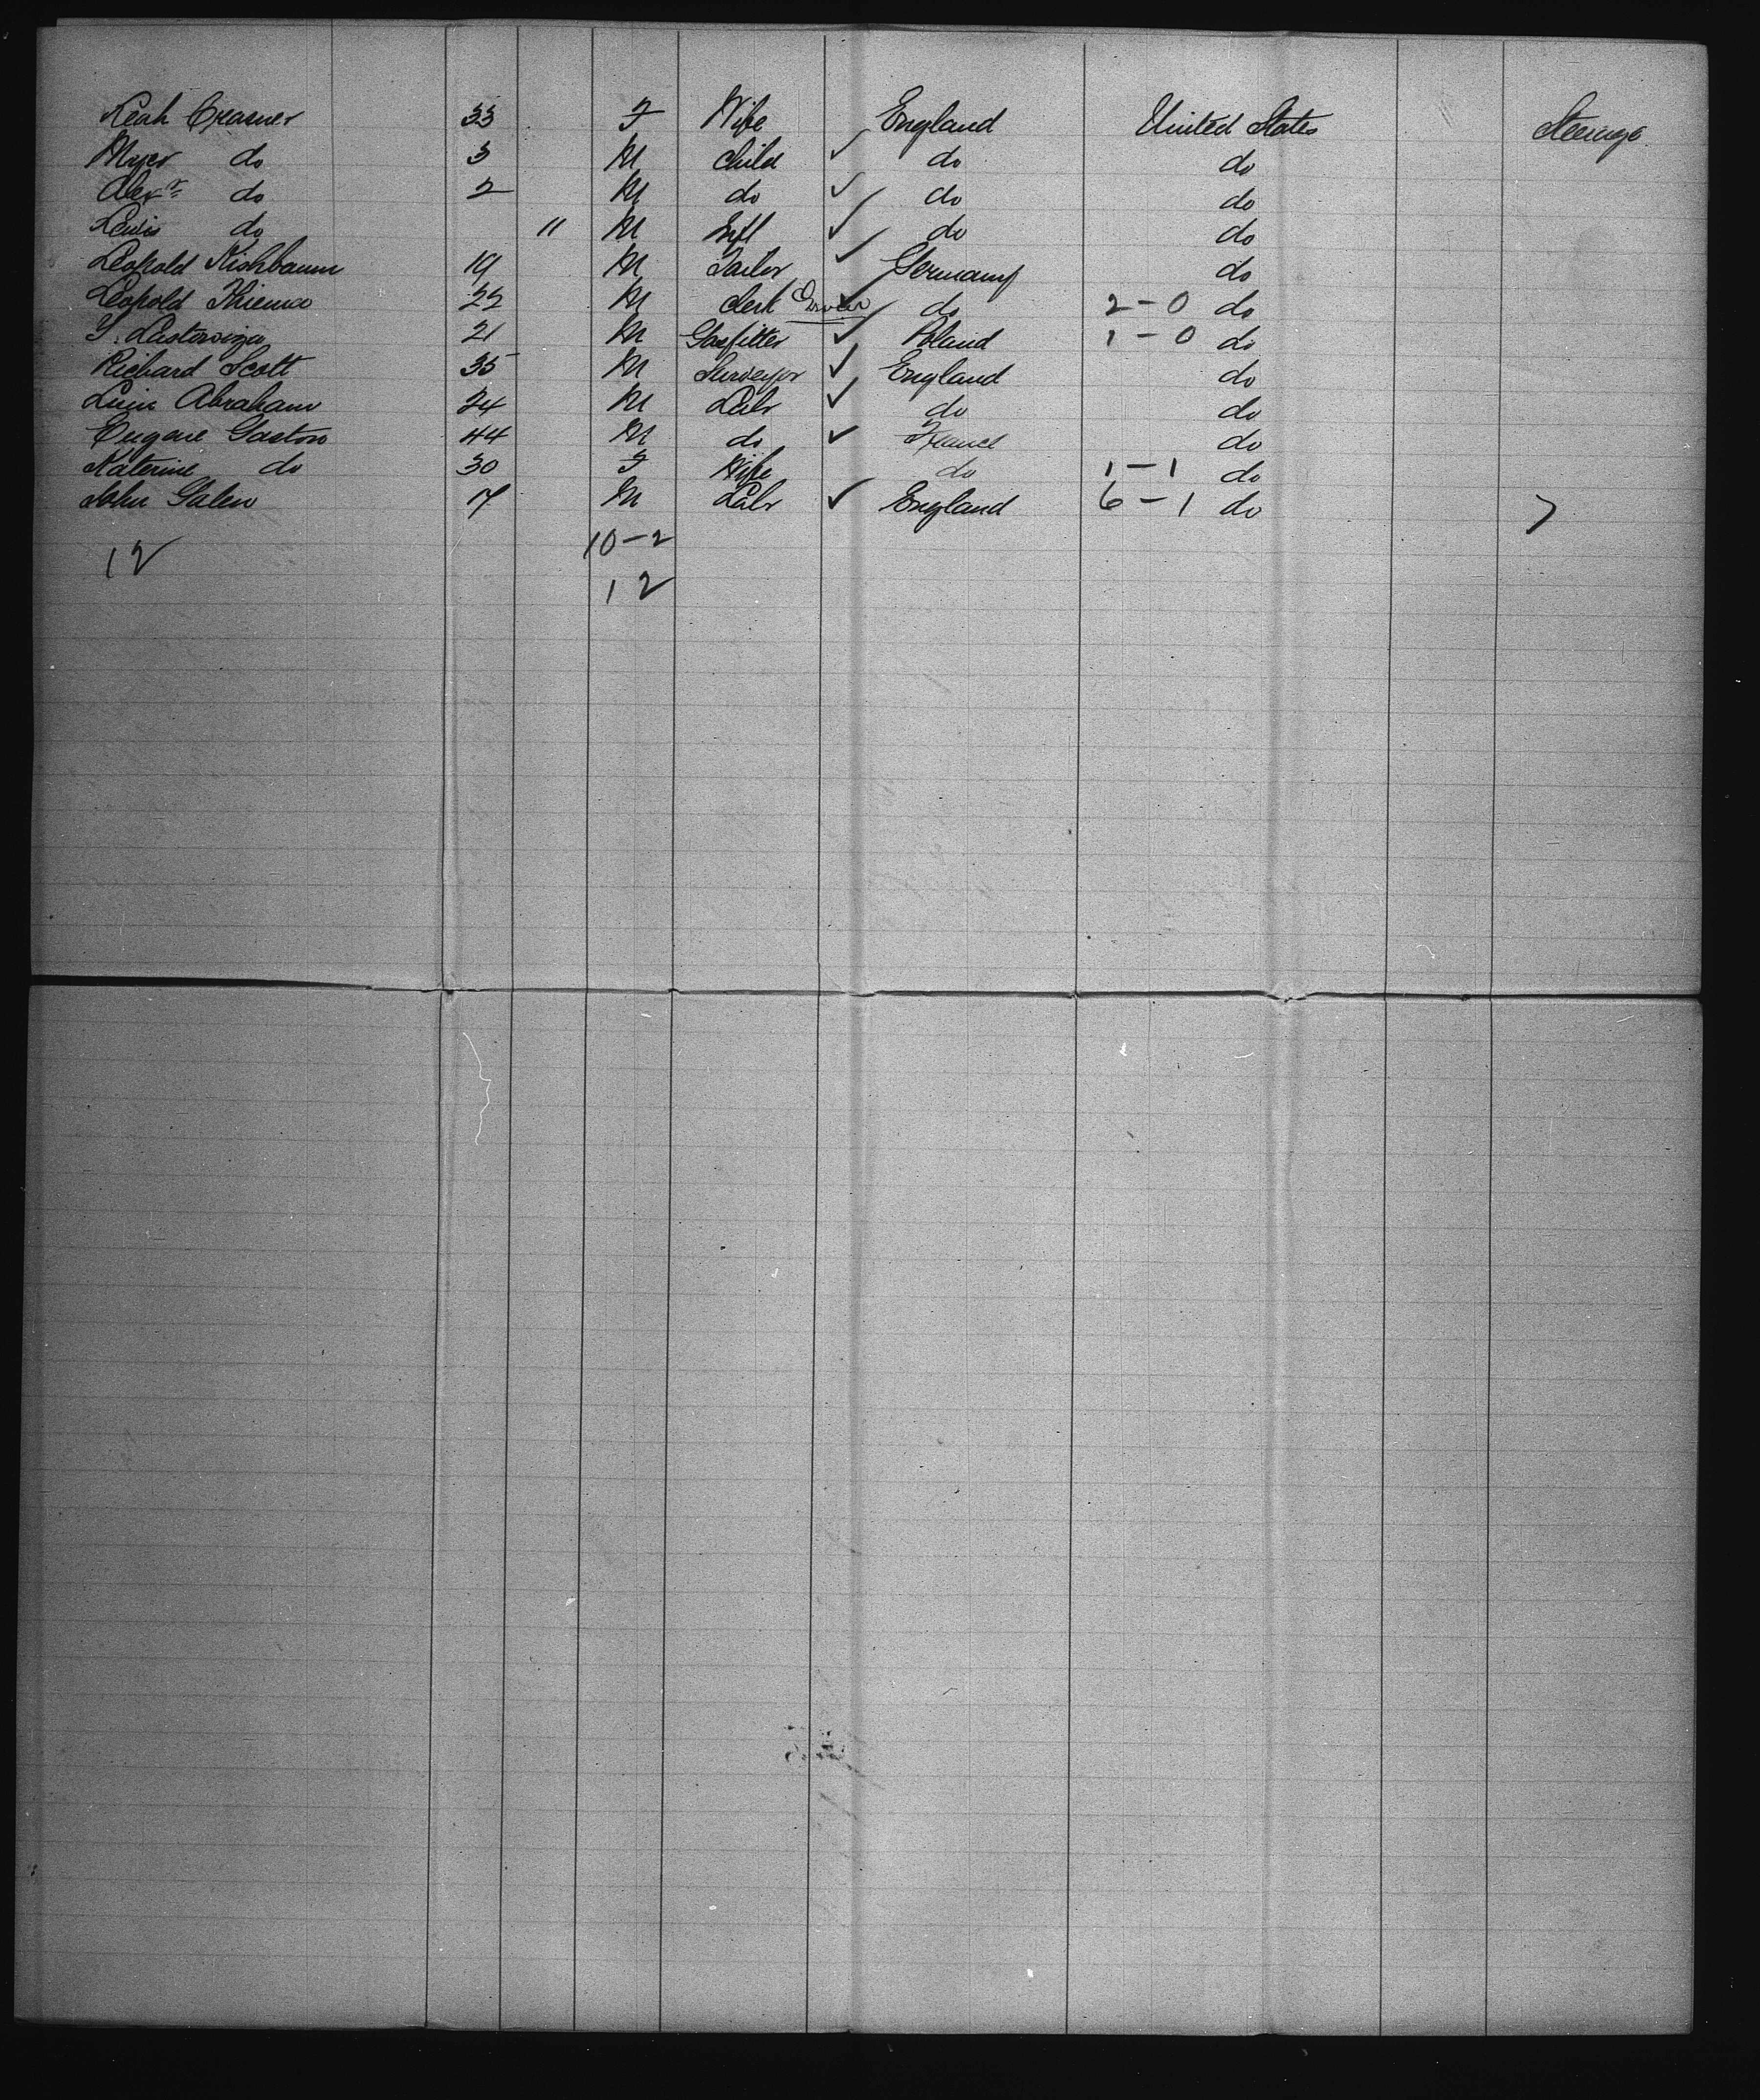 Leah Creasner 33 F Wife England United States Steerage
Myer do 3 M Child ✓ do do
Alexr do 2 M do ✓ do do
Lewis do 11 M Inft ✓ do do
Leopold Kishbaum 19 M Tailor ✓ Germany do
Leopold Thieme 22 M Clerk ✓ do 2-0 do
S. 21 M Gasfitter ✓ Poland 1-0 do
Richard Scott 35 M Surveyor ✓ England do
Abraham 24 M Labr ✓ do do
Eugene Gaston 44 M do ✓ France do
Katerine do 30 F Wife do 1-1 do
John Galen 7 M Labr ✓ England 6-1 do
12 10-2
12